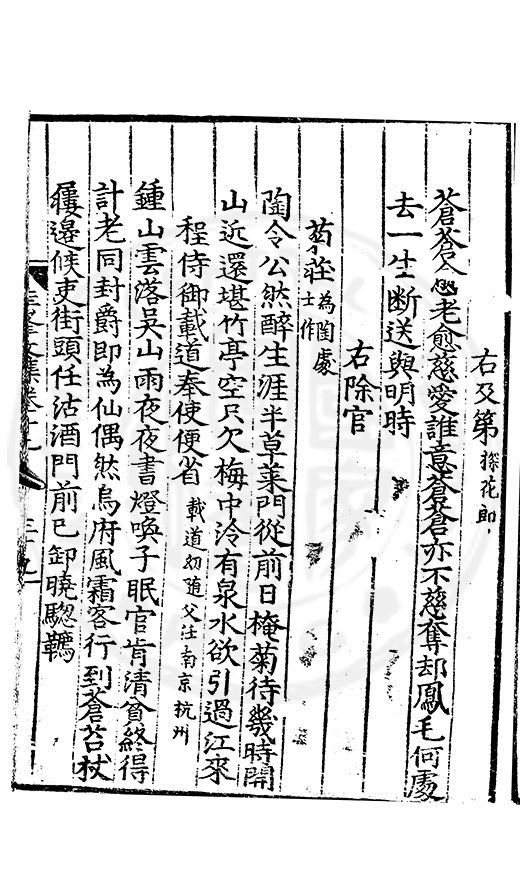 右及第探花郎
蒼蒼念老愈慈愛誰意蒼蒼亦不慈奪却鳳毛何處
去一生断送與明時
右除官
菊莊為陶處士作
陶令公然醉生涯半草萊門從前日掩菊待幾時開
山近還堪竹亭空只欠梅中泠有泉水欲引過江來
程侍御載道奉使便省載道幼随父任南京杭州
鍾山雲落吳山雨夜夜書燈喚子眠官肯清貧終得
計老同封爵即為仙偶然烏府風霜客行到蒼苔杖
屨邉候吏街頭任沽酒門前已卸曉驄韉
文集卷十九